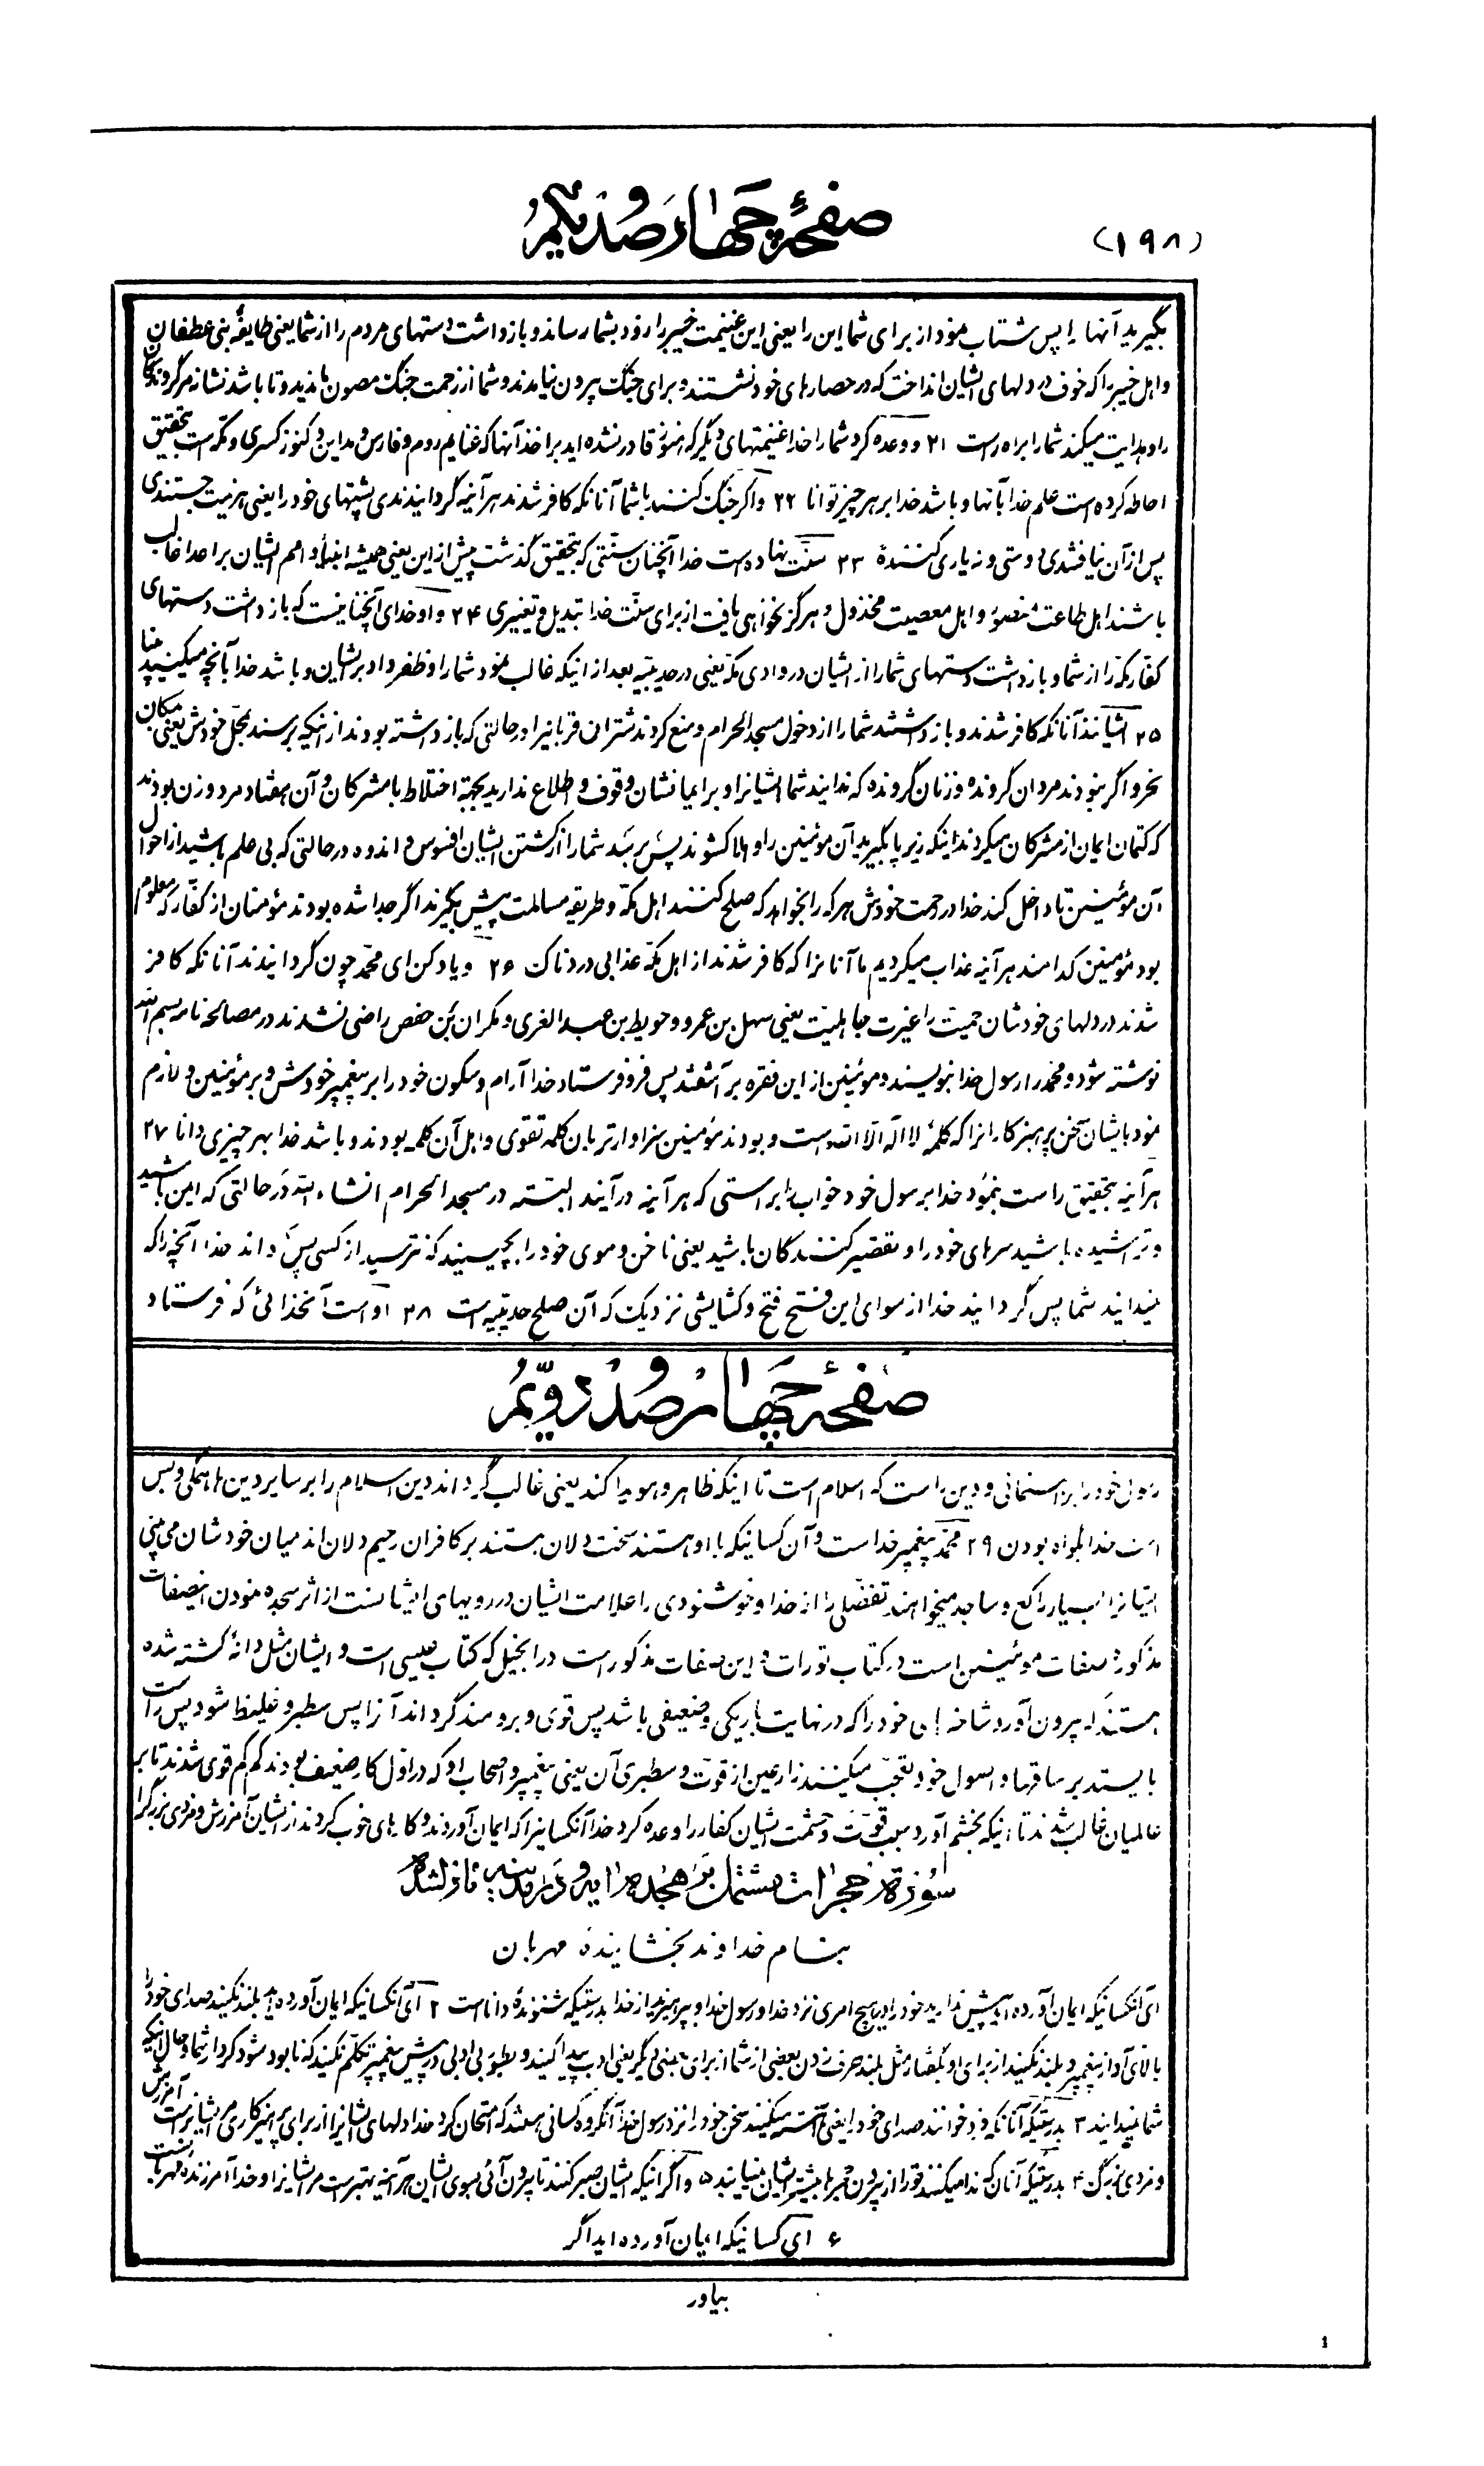 (۱۹۸)
صفحهٔ چهار صد و یکم
بگیرید آنها را پس شتاب نمود از برای شما این را یعنی این غنیمت خیبر را زود بشما رساند و بازداشت دستهای مردم را از شما یعنی طایفهٔ بنی عطفان
و اهل خیبر را که خوف در دلهای ایشان انداخت که در حصارهای خود نشستند و برای جنگ بیرون نیامدند و شما از زحمت جنگ مصون ماندید و تا باشد نشانه مر گروندگان
را و هدایت میکند شما را براه راست ۲۱ و وعده کرد شما را خدا غنیمتهای دیگر که هنوز قادر نشده اید بر اخذ آنها که غنایم روم و فارس و مداین و کنوز کسری و مکه است بتحقیق
احاطه کرده است علم خدا بآنها و باشد خدا بر هر چیز توانا ۲۲ و اگر جنگ کنند با شما آنانکه کافر شدند هر آینه گردانیدندی پشتهای خود را یعنی هزیمت جستندی
پس از آن نیافتندی دوستی و نه یاری کنندهٔ ۲۳ سنّت نهاده است خدا آنچنان سنّتی که بتحقیق گذشت پیش از این یعنی همیشه انبیأ و امم ایشان بر اعدا غالب
باشند اهل طاعت منصور و اهل معصیت مخذول و هرگز نخواهی یافت از برای سنّت خدا تبدیل و تغییری ۲۴ و او خدای آنچنانیست که بازداشت دستهای
کفّار مکّه را از شما و بازداشت دستهای شما را از ایشان در وادی مکّه یعنی در حدیبیّه بعد از اینکه غالب نمود شما را و ظفر داد بر ایشان و باشد خدا بآنچه میکنید بینا
۲۵ ایشانند آنانکه کافر شدند و بازداشتند شما را از دخول مسجد الحرام و منع کردند شتران قربانیرا در حالتی که بازداشته بودند از اینکه برسند بمحلّ خودش یعنی مکان
نحر و اگر نبودند مردان گرونده و زنان گرونده که ندانید شما ایشانرا و بر ایمانشان وقوف و اطلاع ندارید بجهة اختلاط با مشرکان و آن هفتاد مرد و زن بودند
که کتمان ایمان از مشرکان میکردند اینکه زیر پا بگیرید آن مؤمنین را و هلاک شوند پس برسد شما را از کشتن ایشان افسوس و اندوه در حالتی که بی علم باشید از احوال
آن مؤمنین تا داخل کند خدا در رحمت خودش هر که را بخواهد که صلح کنند اهل مکّه و طریقه مسالمت پیش بگیرند اگر جدا شده بودند مؤمنان از کفّار که معلوم
بود مؤمنین کدامند هر آینه عذاب میکردیم ما آنانرا که کافر شدند از اهل مکّه عذابی دردناک ۲۶ و یاد کن ای محمّد چون گردانیدند آنانکه کافر
شدند در دلهای خودشان حمیت را غیرت جاهلیت یعنی سهل بن عمرو و حویط بن عبد الغری و مکران بن حفص راضی نشدند در مصالحه نامه بسم الله
نوشته شود و محمّد را رسول خدا بنویسند و مؤمنین از این فقره برآشفتند پس فرو فرستاد خدا آرام و سکون خود را بر پیغمبر خودش و بر مؤمنین و لازم
نمود بایشان سخن پرهیزکارانرا که کلمهٔ لا اله الا الله است و بودند مؤمنین سزاوارتر بان کلمه تقوی و اهل آن کلمه بودند و باشد خدا بهر چیزی دانا ۲۷
هر آینه بتحقیق راست بنمود خدا برسول خود خواب را براستی که هر آینه درآیند البتّه در مسجد الحرام انشاء الله در حالتی که امین باشید
و تراشیده باشید سرهای خود را و تقصیر کنندگان باشید یعنی ناخن و موی خود را بچینید که نترسید از کسی پس داند خدا آنچه را که
نمیدانید شما پس گردانید خدا از سوای این فتح فتح و گشایشی نزدیک که آن صلح حدیبیّه است ۲۸ او است آنخدائی که فرستاد
صفحهٔ چهار صد و دویّم
رسول خود را براهنمائی و دین راست که اسلام است تا اینکه ظاهر و هویدا کند یعنی غالب گرداند دین اسلام را بر سایر دین ها همگی و بس
است خدا بگواه بودن ۲۹ محمّد پیغمبر خداست و آن کسانیکه با او هستند سخت دلان هستند بر کافران رحیم دلان اند میان خودشان می بینی
ایشانرا بسیار راکع و ساجد میخواهند تفضّلی را از خدا و خوشنودی را علامت ایشان در رویهای ایشانست از اثر سجده نمودن اینصفات
مذکوره صفات مؤمنین است در کتاب تورات و این صفات مذکور است در انجیل که کتاب عیسی است و ایشان مثل دانهٔ کشته شده
هستند که بیرون آورد شاخه های خود را که در نهایت باریکی و ضعیفی باشد پس قوی و برومند گرداند آنرا پس سطبر و غلیظ شود پس راست
بایستد بر ساقها و اصول خود تعجّب میکنند زارعین از قوّت و سطبری آن یعنی پیغمبر و اصحاب او که در اوّل کار ضعیف بودند کم کم قوی شدند تا بر
عالمیان غالب شدند تا اینکه بخشم آورد بسبب قوّت و حشمت ایشان کفار را وعده کرد خدا آنکسانیرا که ایمان آوردند و کارهای خوب کردند از ایشان آمرزش و مزدی بزرگ را
سورۀ حجرات مشتمل بر هجده ایه و در مدینه نازلشده
بنام خداوند بخشایندهٔ مهربان
ای آنکسانیکه ایمان آورده اید پیش ندارید خود را در هیچ امری نزد خدا و رسول خدا و بپرهیزید از خدا بدرستیکه شنوندهٔ داناست ۲ ای آنکسانیکه ایمان آورده اید بلند نکنید صدای خود را
بالای آواز پیغمبر و بلند نکنید از برای او گفتار مثل بلند حرف زدن بعضی از شما از برای بعضی دیگر یعنی ادب پیدا کنید و بطور بی ادبی در پیش پیغمبر تکلّم نکنید که نابود شود کردار شما و حال اینکه
شما نمیدانید ۳ بدرستیکه آنانکه فرو خوانند صدای خود را یعنی آهسته میکنند سخن خود را نزد رسول خدا آنگروه کسانی هستند که امتحان کرد خدا دلهای ایشانرا از برای پرهیزکاری مر ایشانراست آمرزش
و مزدی بزرگ ۴ بدرستیکه آنان که ندا میکنند تو را از بیرون حجره ها بیشتر ایشان نمیابند ۵ و اگر اینکه ایشان صبر کنند تا بیرون آئی بسوی ایشان هر آینه بهتر است مر ایشانرا و خدا آمرزندهٔ مهربانست
۶ ای کسانیکه ایمان آورده اید اگر
بیاور
1